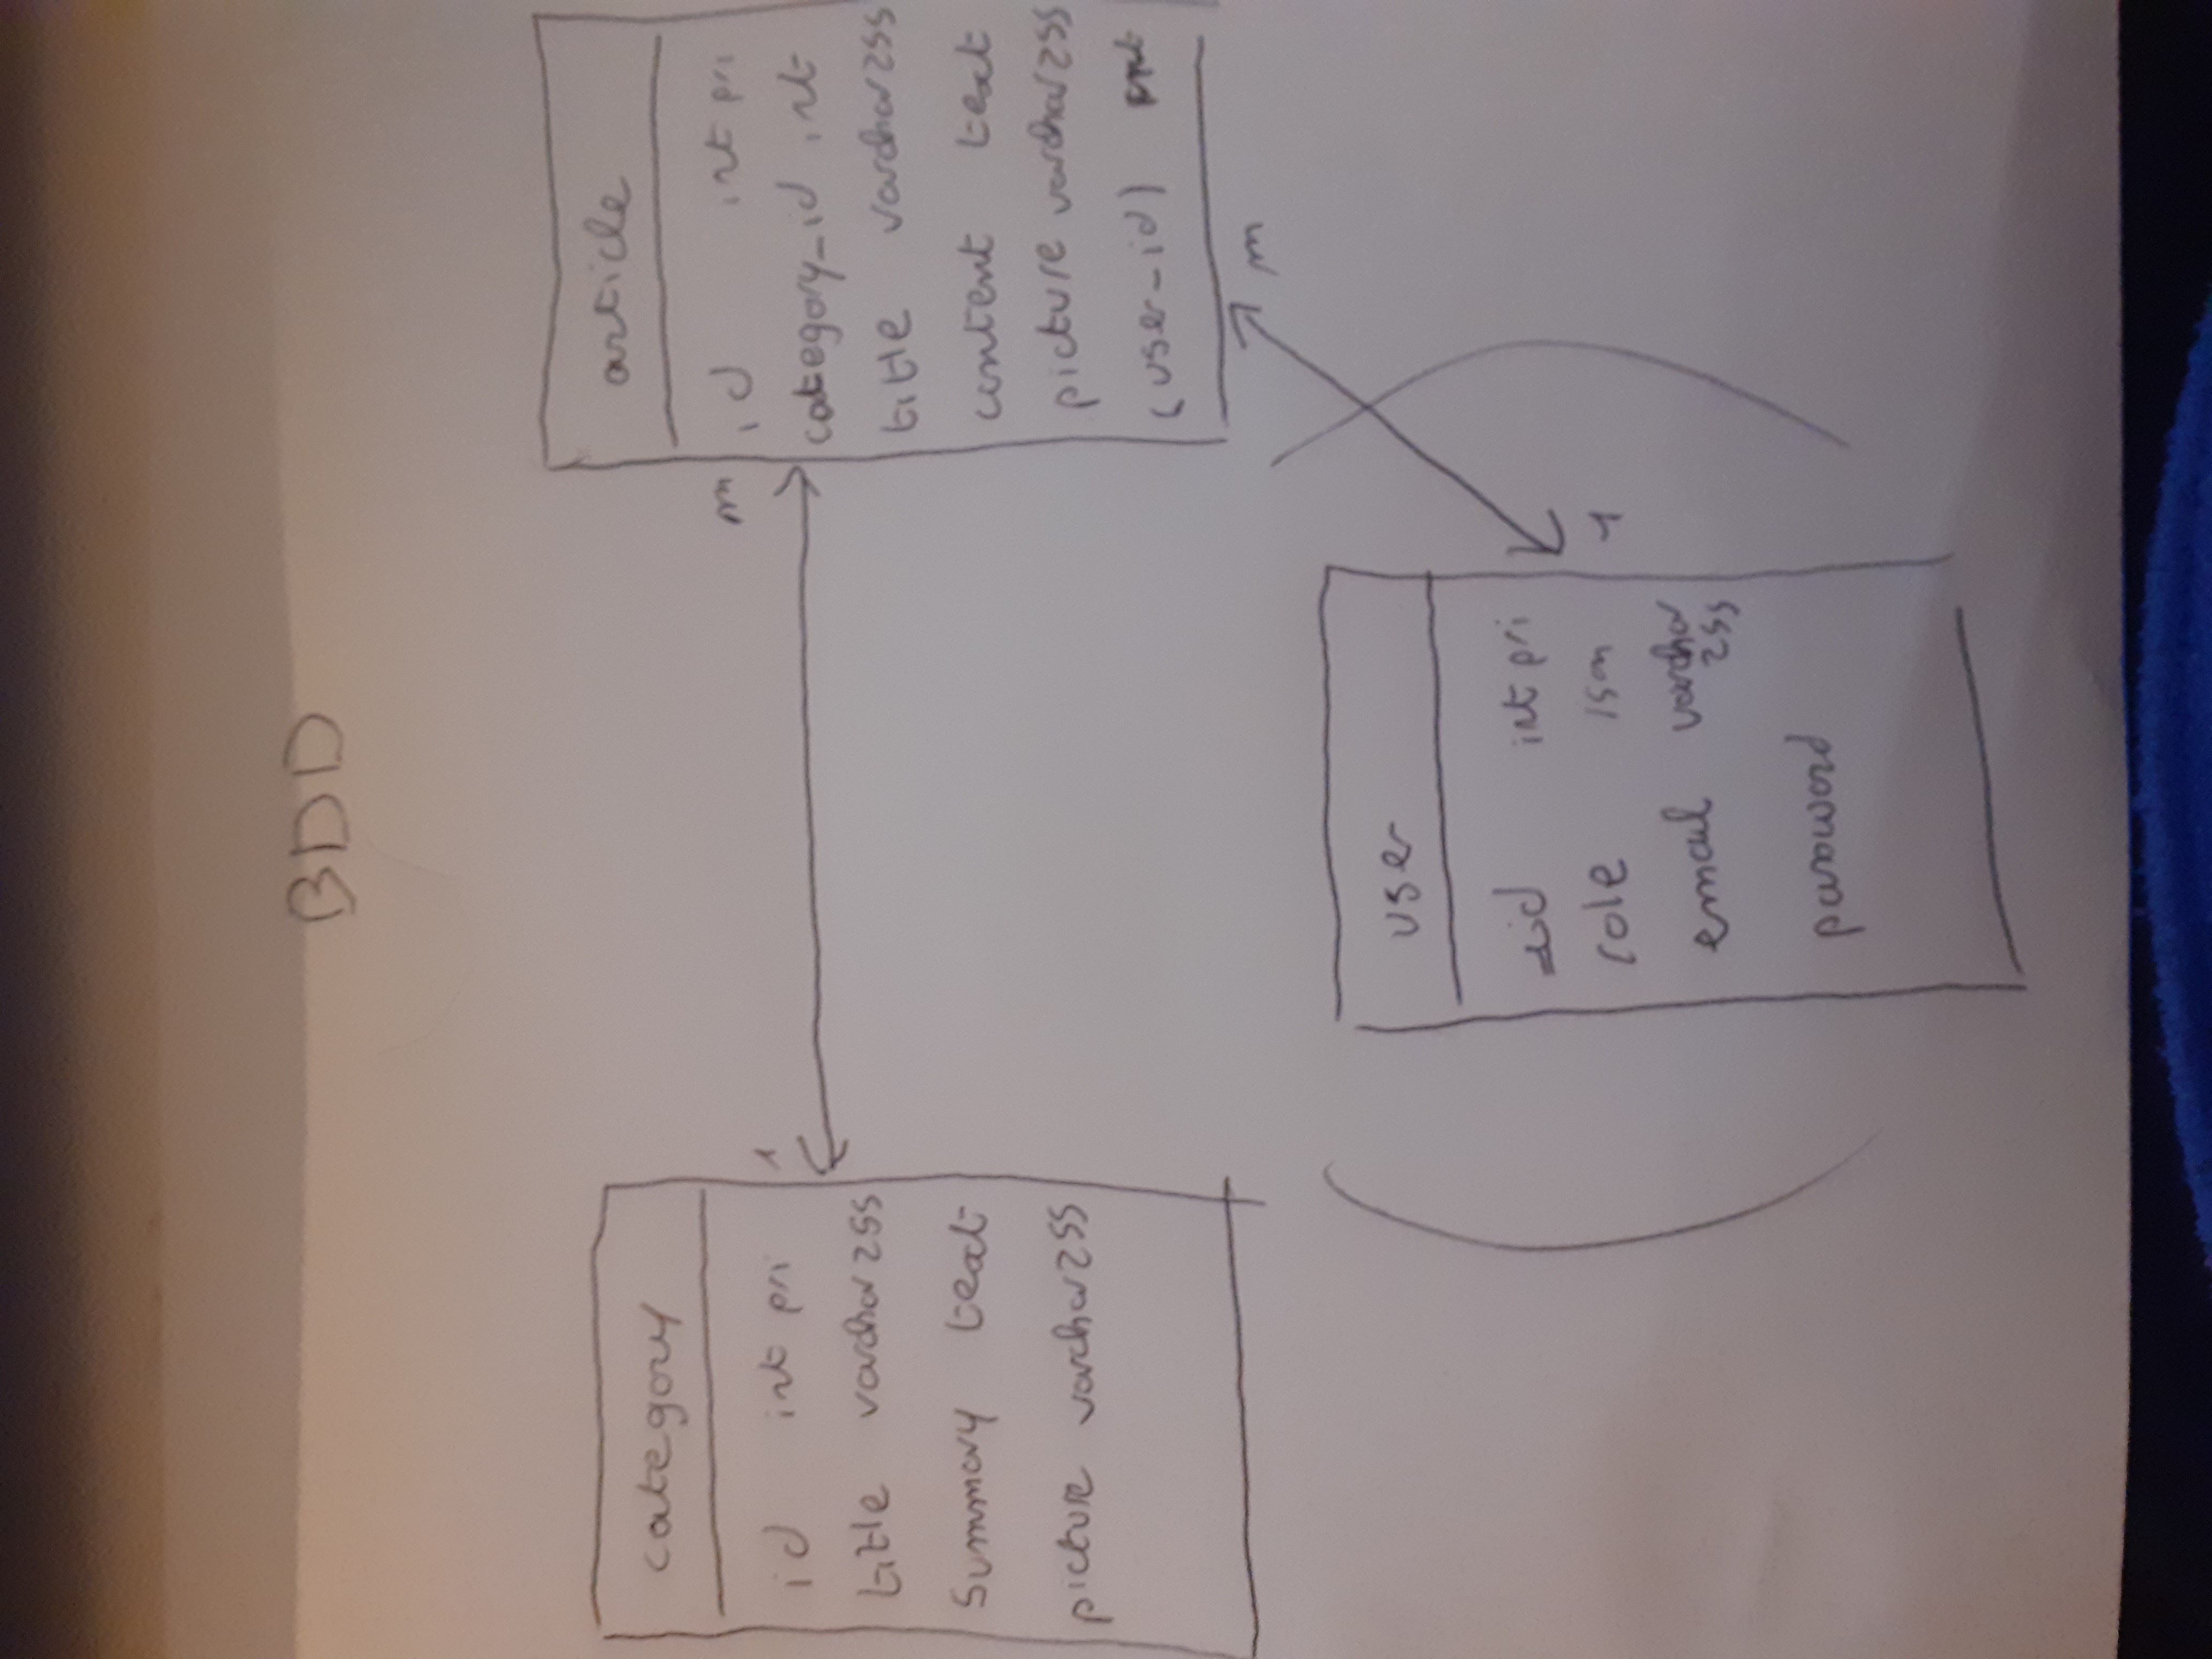 BDD
category
id int pri
title varchar 255
summary text
picture varchar 255
1
m
article
id int pri
category_id int
title varchar 255
content text
picture varchar 255
(user_id) int
m
user
id int pri
role json
email varchar
255
password
1